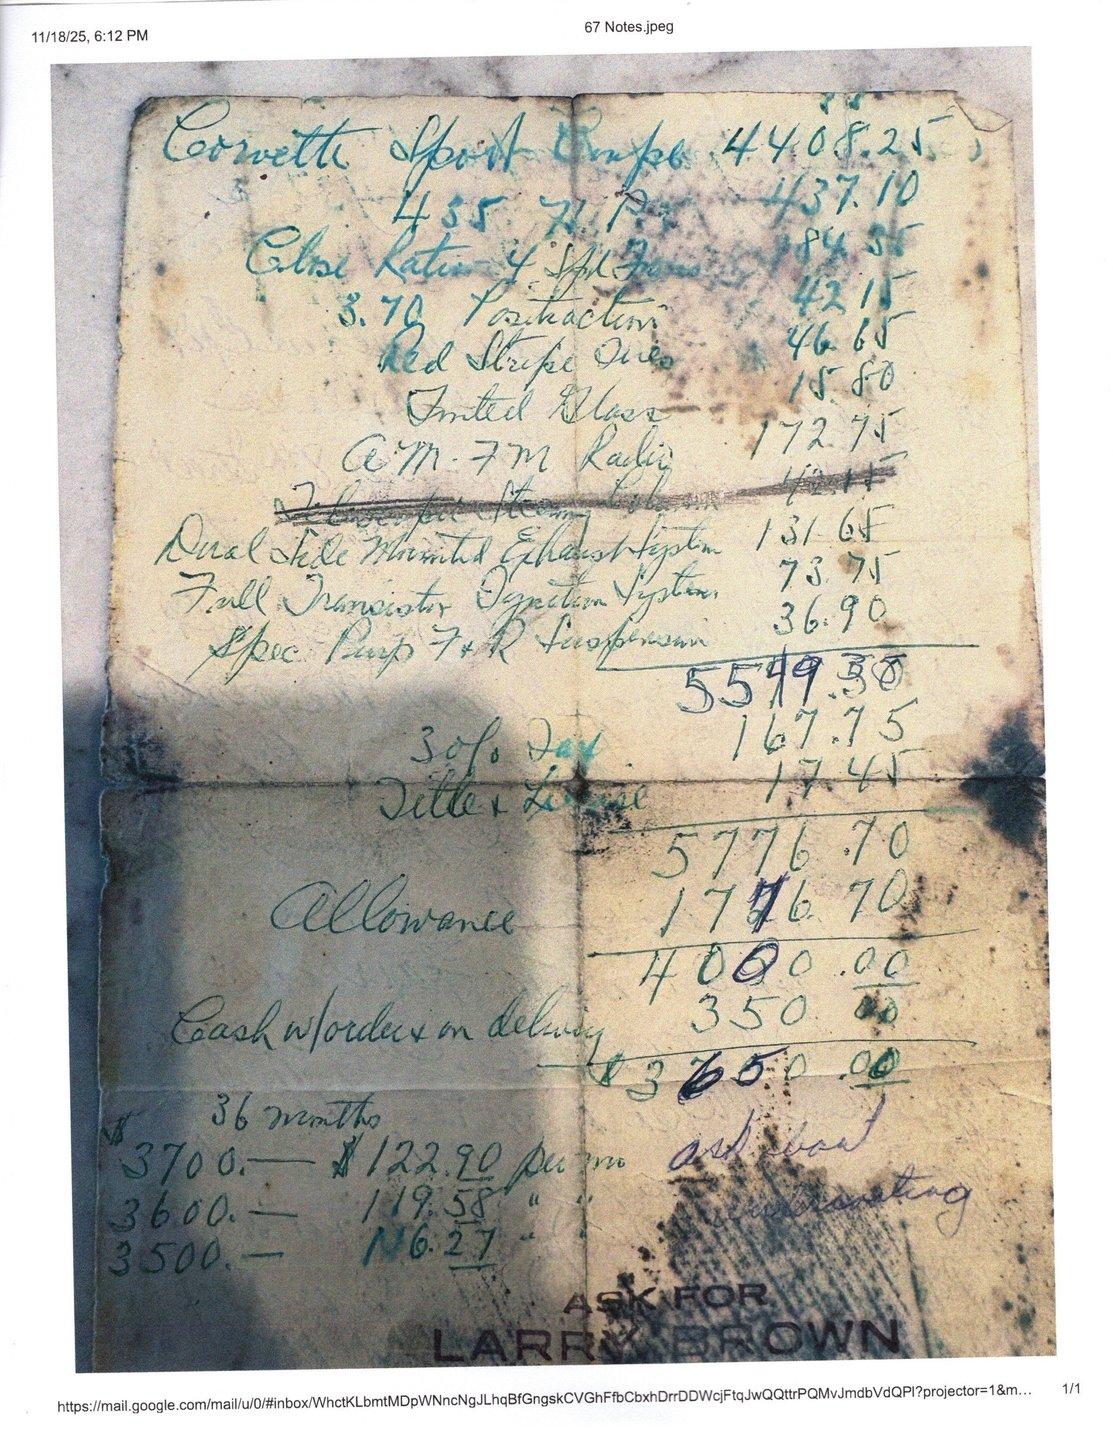 11/18/25, 6:12 PM 67 Notes.jpeg
Corvette Sport Coupe 4408.25
435 H.P. 437.10
Close Ratio 4 Spd Trans 184.35
3.70 Positraction 42 15
Red Stripe Tires 46.65
Tinted Glass 15.80
AM-FM Radio 172.75
42.15
Dual Side Mounted Exhaust System 131.65
Full Transistor Ignition System 73.75
Spec Purp F & R Suspension 36.90
3% Tax 167.75
Title & License 17.45
5776.70
Allowance 1776.70
4000.00
Cash w/order & on delivery 350.00
$3650.00
36 months
$3700. — $122.90 per mo ask about
3600. — 119.58 " "
3500. — 116.27 " "
ASK FOR
LARRY BROWN
https://mail.google.com/mail/u/0/#inbox/WhctKLbmtMDpWNncNgJLhqBfGngskCVGhFfbCbxhDrrDDWcjFtqJwQQttrPQMvJmdbVdQPl?projector=1&m... 1/1